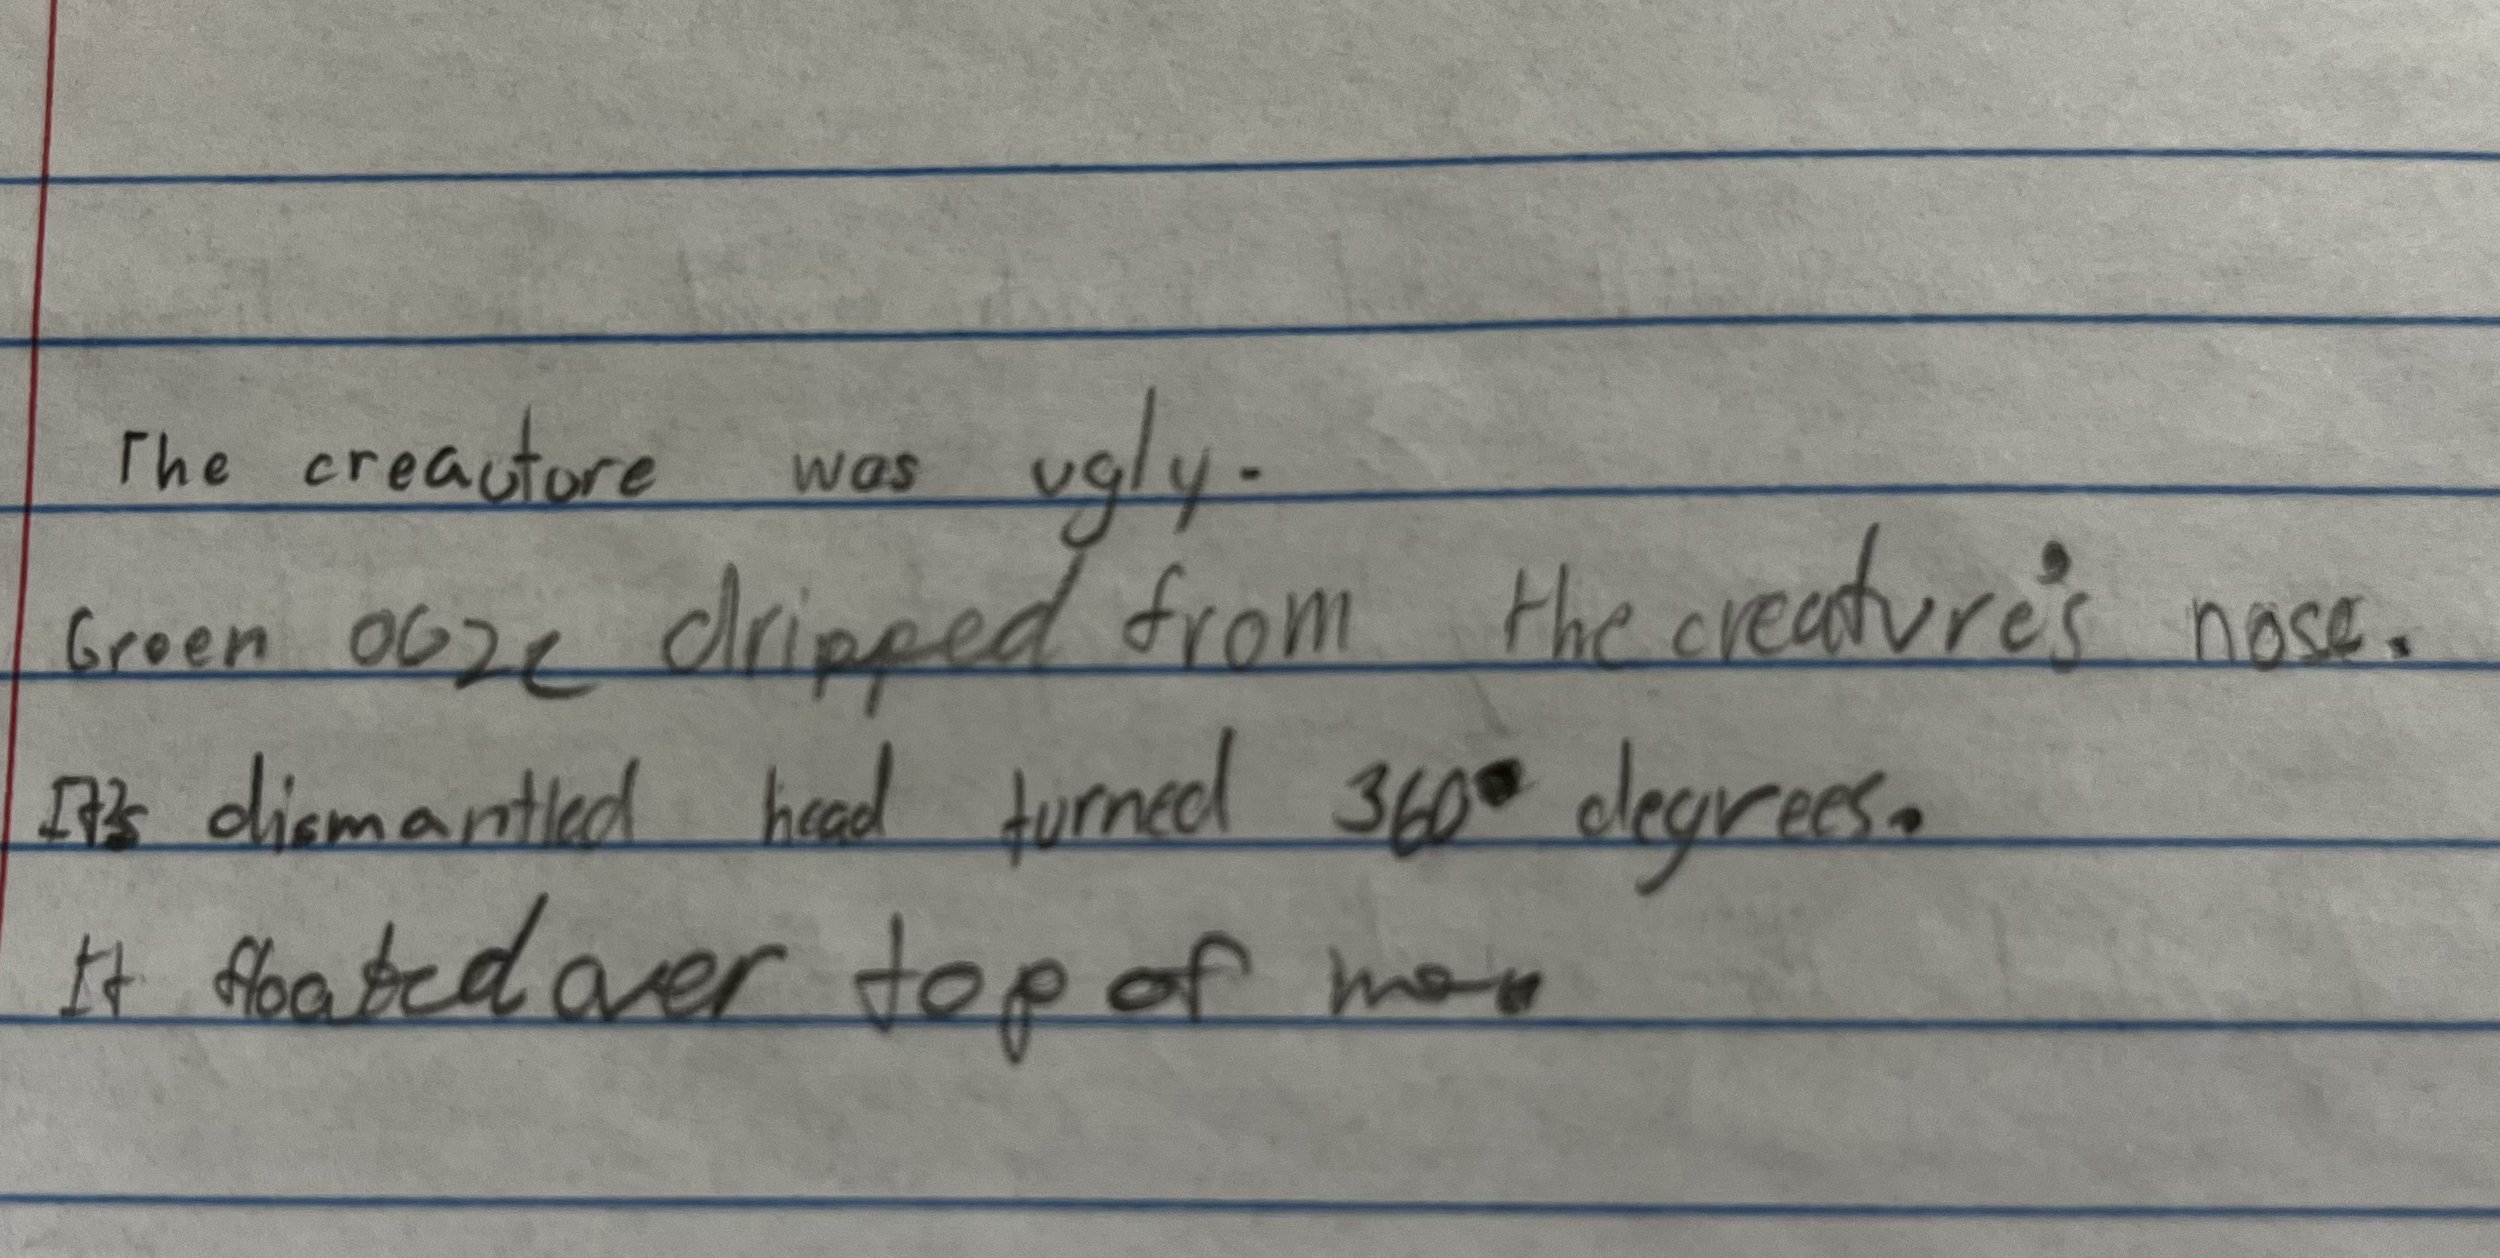 The creauture was ugly.
Green ooze dripped from the creature's nose.
It's dismantled head turned 360° degrees.
It floated over top of